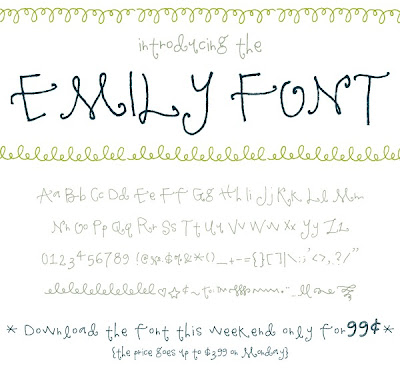 introducing the
EMILY FONT
Aa Bb Cc Dd Ee Ff Gg Hh Ii Jj Kk Ll Mm
Nn Oo Pp Qq Rr Ss Tt Uu Vv Ww Xx Yy Zz
0123456789 (@#$%&*()_+-={}[]|\:;'<>,.?/"
* Download the font this weekend only for 99¢ *
{the price goes up to $3.99 on Monday}